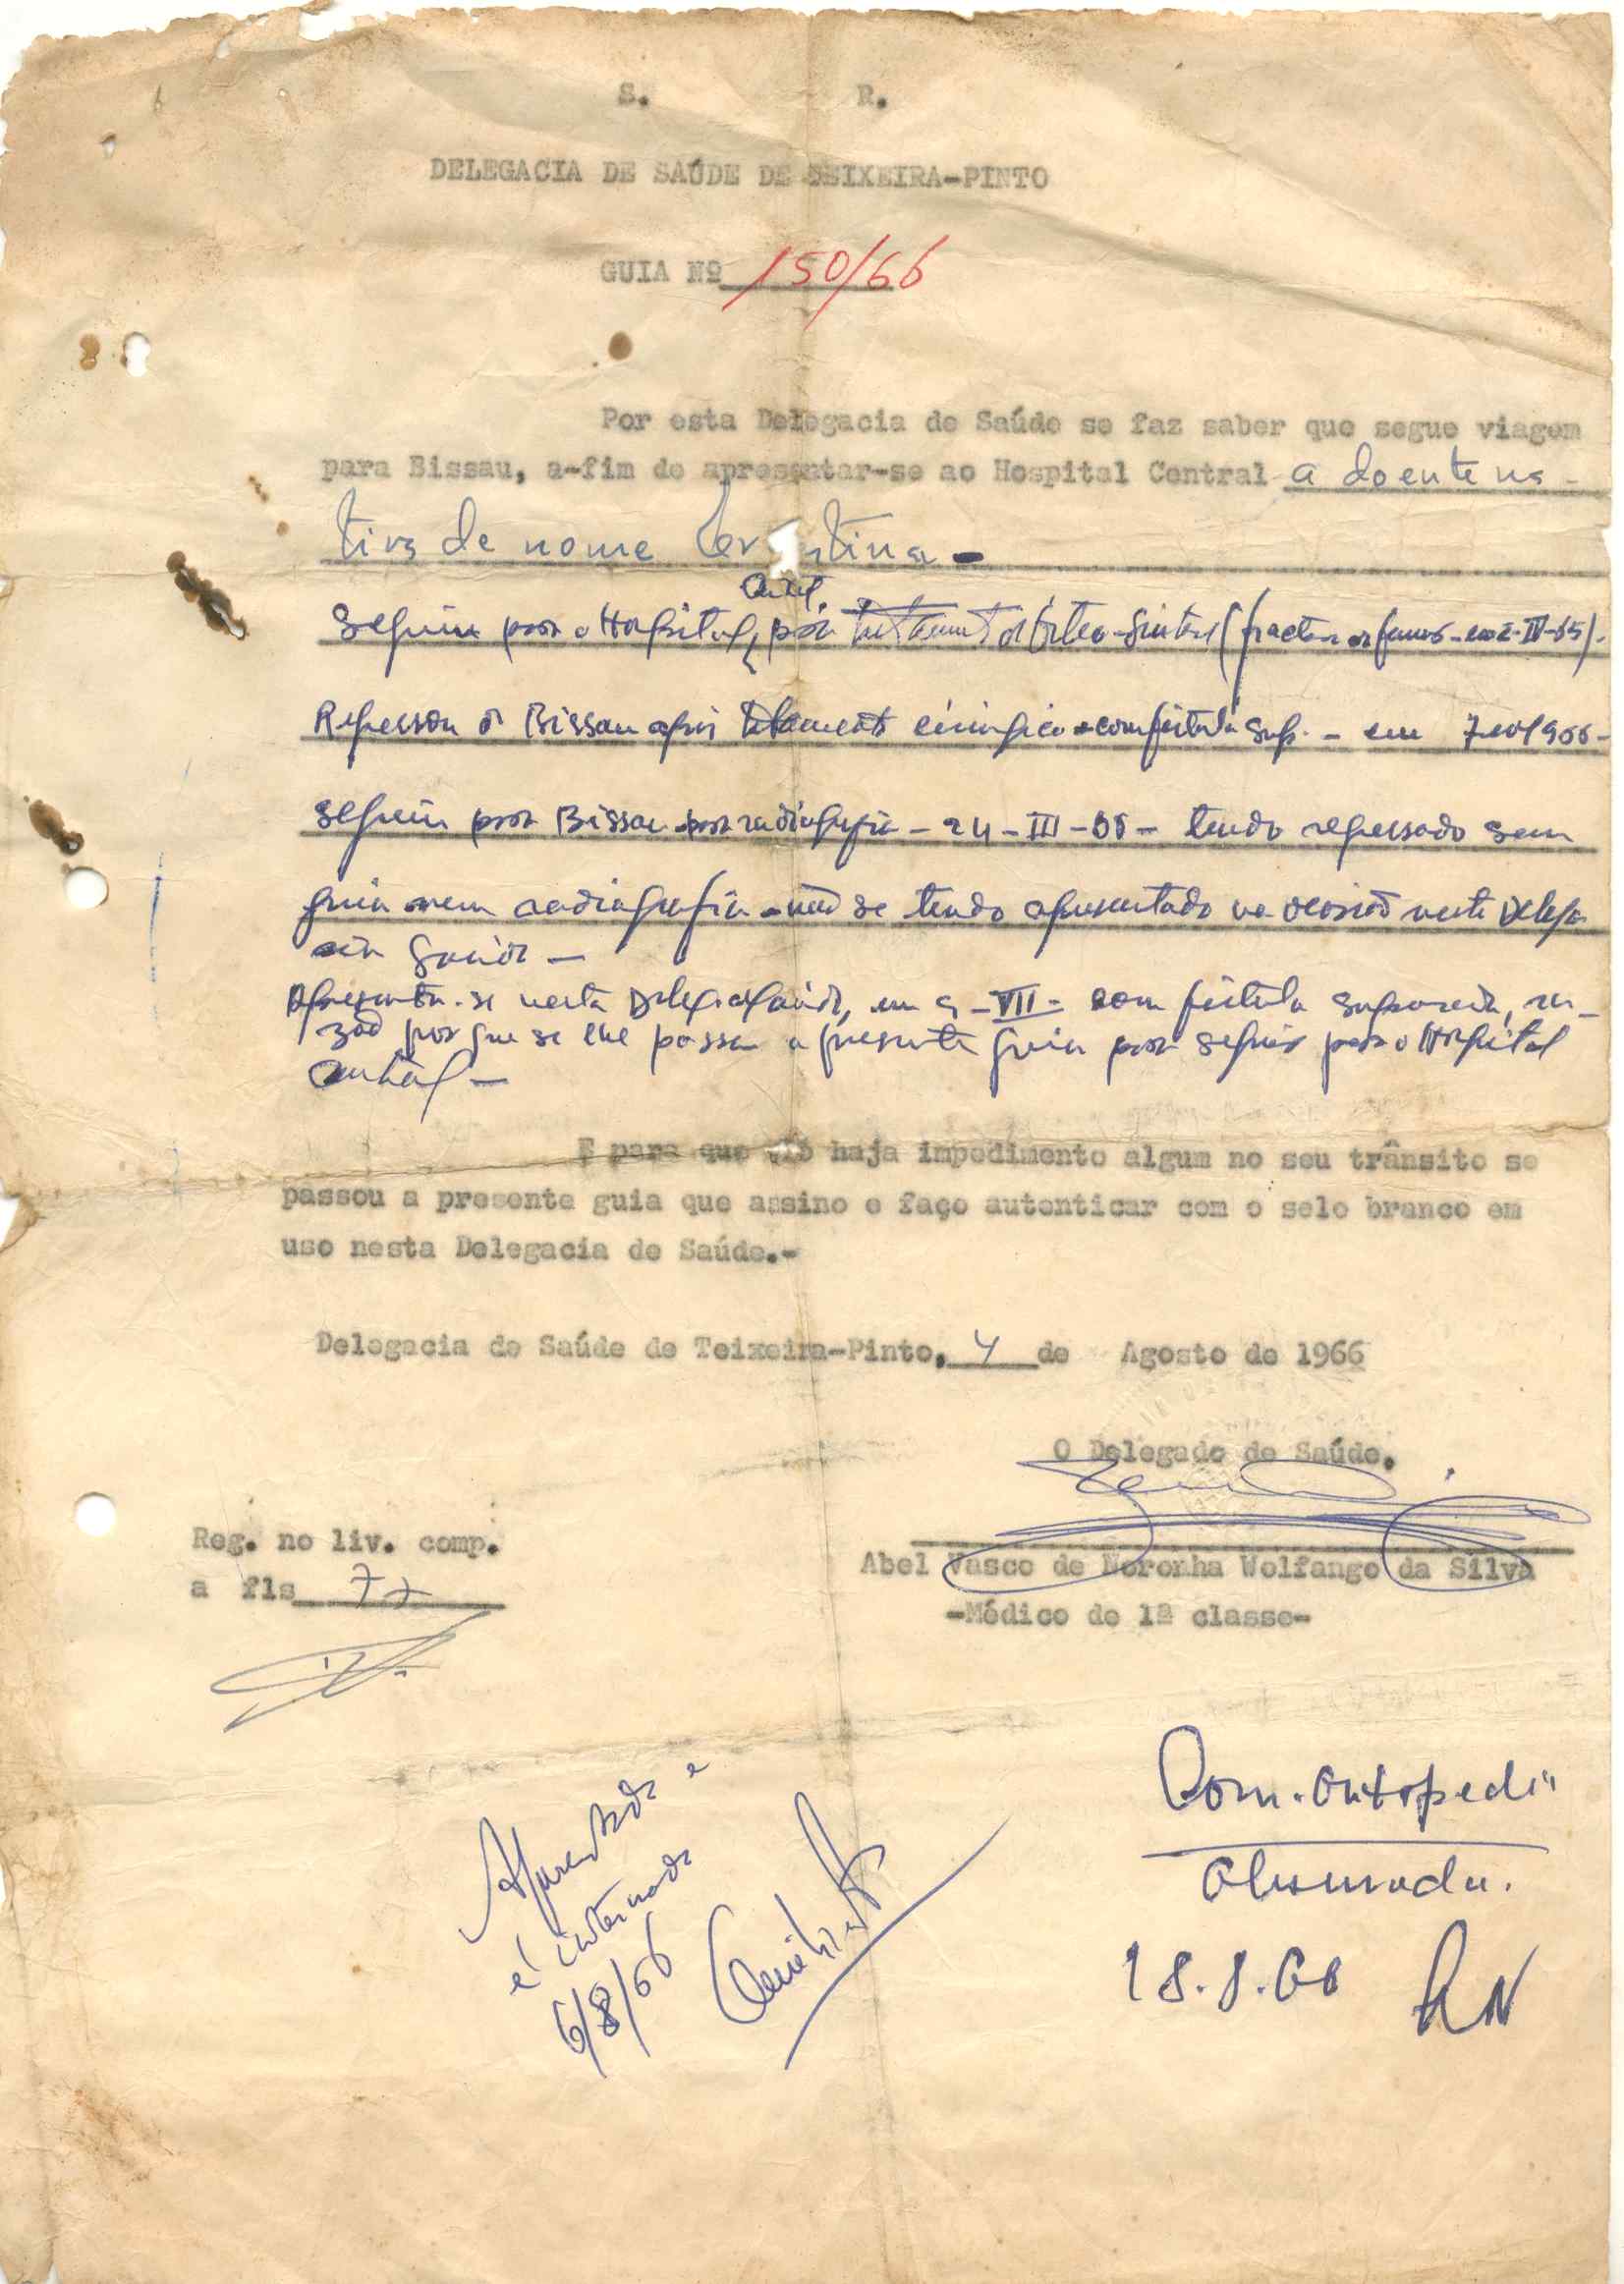 S. R.
DELEGACIA DE SAÚDE DE TEIXEIRA-PINTO
GUIA Nº 150/66
Por esta Delegacia de Saúde se faz saber que segue viagem
para Bissau, a-fim de apresentar-se ao Hospital Central a doente na-
tiva de nome
Central
Seguiu para o Hospital, para tratamento de (fractura do femur - em
Regressou de Bissau após tratamento cirúrgico - com fístula sup. - em
Seguiu para Bissau para radiografia - 24 - III - 66 - tendo regressado sem
guia nem radiografia - não se tendo apresentado na ocasião nesta Delega
cia Saúde -
Apresentou-se nesta Delegacia Saúde, em - VII - com fístula supurada, ra-
zão por que se lhe passa a presente guia para seguir para o Hospital
Central -
E para que não haja impedimento algum no seu trânsito se
passou a presente guia que assino e faço autenticar com o selo branco em
uso nesta Delegacia de Saúde.-
Delegacia de Saúde de Teixeira-Pinto, 4 de Agosto de 1966
O Delegado de Saúde.
Abel Vasco de Noronha Wolfango da Silva
-Médico de 1ª classe-
Reg. no liv. comp.
a fls 77
Apresentada e
é internada
6/8/66
Com. Ortopedia
Observada.
18.8.66 RN